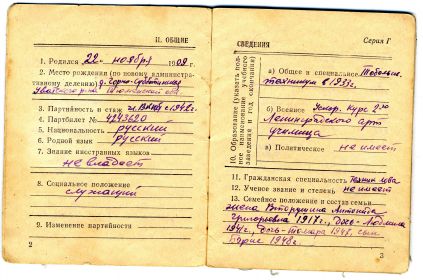 II. ОБЩИЕ
1. Родился 22 ноября 1909 г.
2. Место рождения (по новому административному делению) д. Горно-Субботинская
Уватского р-на Тюменской обл.
3. Партийность и стаж чл. ВКП(б) с 1942 г.
4. Партбилет № 4243620
5. Национальность русский
6. Родной язык русский
7. Знание иностранных языков
не владеет
8. Социальное положение
служащий
9. Изменение партийности
2
СВЕДЕНИЯ
Серия Г
10. Образование (указать полное наименование учебного заведения и год окончания)
а) Общее и специальное Тобольск.
техникум в 1933 г.
б) Военное Ускор. курс 2го
Ленинградского арт.
училища
в) Политическое не имеет
11. Гражданская специальность
12. Ученое звание и степень не имеет
13. Семейное положение и состав семьи
жена Вторушина Антонида
Григорьевна 1917 г., дочь-Людмила
дочь-Тамара сын
Борис 1948 г.
3